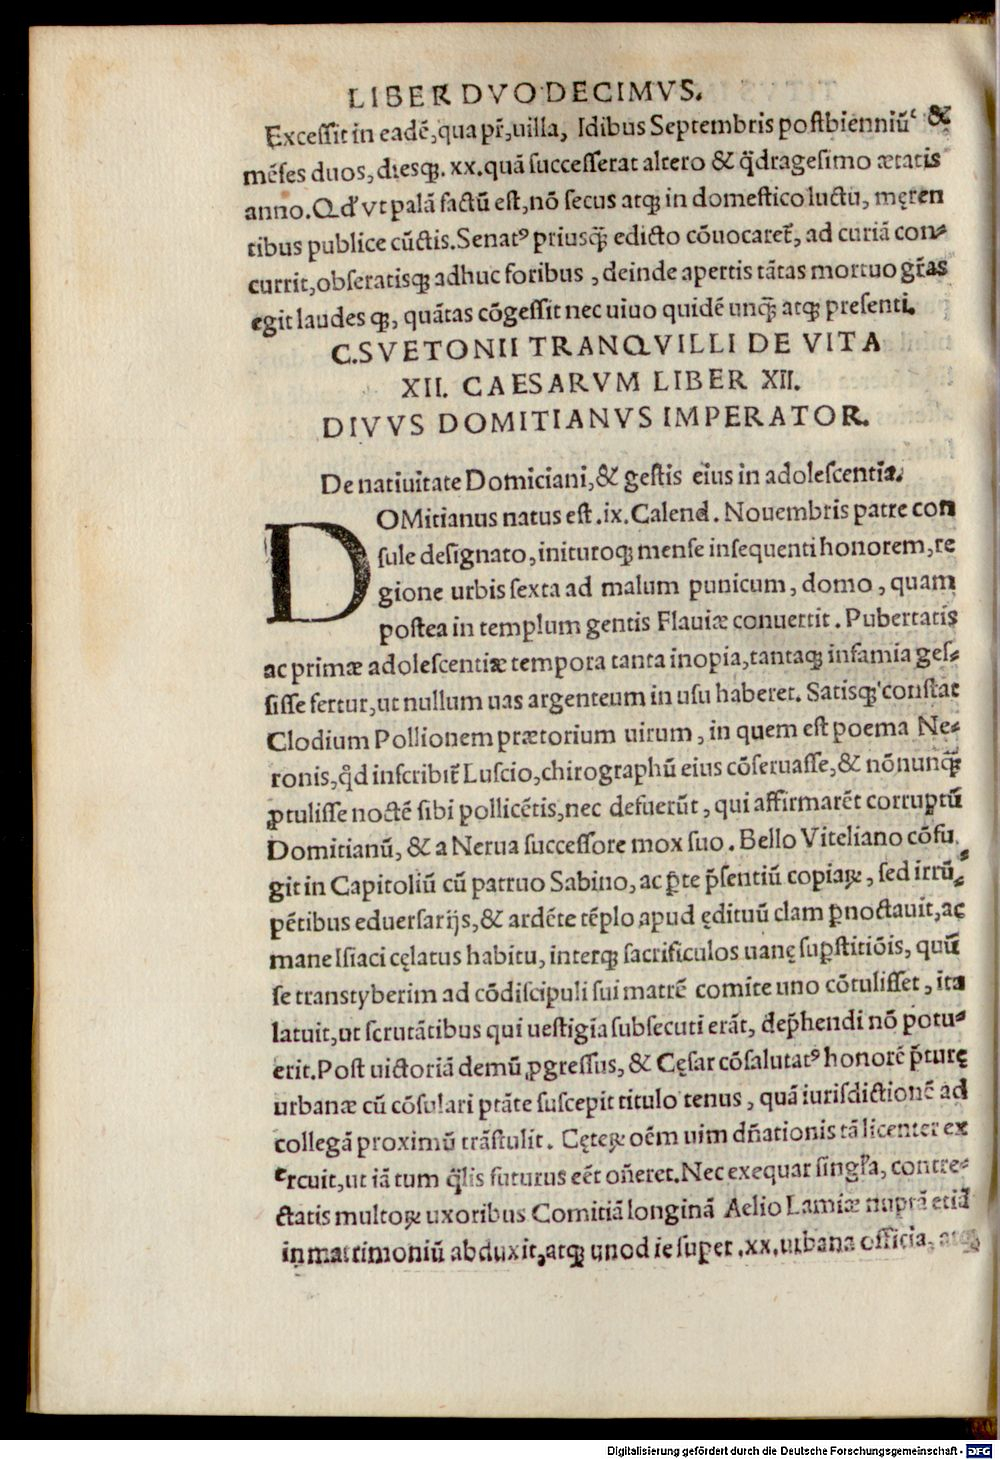 LIBER DVODECIMVS.
Excessit in eadē, qua pr̄, uilla, Idibus Septembris post bienniū &
mēses duos, diesqꝫ. xx. quā successerat altero & q̄dragesimo ætatis
anno. Qd' vt palā factū est, nō secus atqꝫ in domestico luctu, męren
tibus publice cūctis. Senatꝰ priusq̄ꝫ edicto cōuocaret̄, ad curiā con-
currit, obseratisqꝫ adhuc foribus, deinde apertis tātas mortuo gr̄as
egit laudesqꝫ, quātas cōgessit nec uiuo quidē unq̄ꝫ atqꝫ presenti.
C. SVETONII TRANQVILLI DE VITA
XII. CAESARVM LIBER XII.
DIVVS DOMITIANVS IMPERATOR.
De natiuitate Domiciani, & gestis eius in adolescentia.
DOMitianus natus est .ix. Calend. Nouembris patre con
sule designato, inituroqꝫ mense insequenti honorem, re
gione urbis sexta ad malum punicum, domo, quam
postea in templum gentis Flauiæ conuertit. Pubertatis
ac primæ adolescentiæ tempora tanta inopia, tantaqꝫ infamia ges-
sisse fertur, ut nullum uas argenteum in usu haberet. Satisqꝫ constat
Clodium Pollionem prætorium uirum, in quem est poema Ne-
ronis, qd̄ inscribit̄ Luscio, chirographū eius cōseruasse, & nōnunq̄ꝫ
ꝓtulisse noctē sibi pollicētis, nec defuerūt, qui affirmarēt corruptū
Domitianū, & a Nerua successore mox suo. Bello Viteliano cōfu
git in Capitoliū cū patruo Sabino, ac ꝑte p̄sentiū copiaꝝ, sed irrū-
pētibus eduersarijs, & ardēte tēplo apud ędituū clam ꝑnoctauit, ac
mane Isiaci cęlatus habitu, interqꝫ sacrificulos uanę suꝑstitiōis, quū
se transtyberim ad cōdiscipuli sui matrē comite uno cōtulisset, ita
latuit, ut scrutātibus qui uestigia subsecuti erāt, dep̄hendi nō potu-
erit. Post uictoriā demū ꝓgressus, & Cęsar cōsalutatꝰ honorē p̄turę
urbanæ cū cōsulari ptāte suscepit titulo tenus, quā iurisdictionē ad
collegā proximū trāstulit. Cęteꝝ oēm uim dn̄ationis tā licenter ex
ercuit, ut iā tum q̄lis futurus eēt on̄eret. Nec exequar singl'a, contre-
ctatis multoꝝ uxoribus Comitiā longinā Aelio Lamiæ nuptā etiā
in matrimoniū abduxit, atqꝫ uno die super .xx. urbana officia, atqꝫ
Digitalisierung gefördert durch die Deutsche Forschungsgemeinschaft - DFG